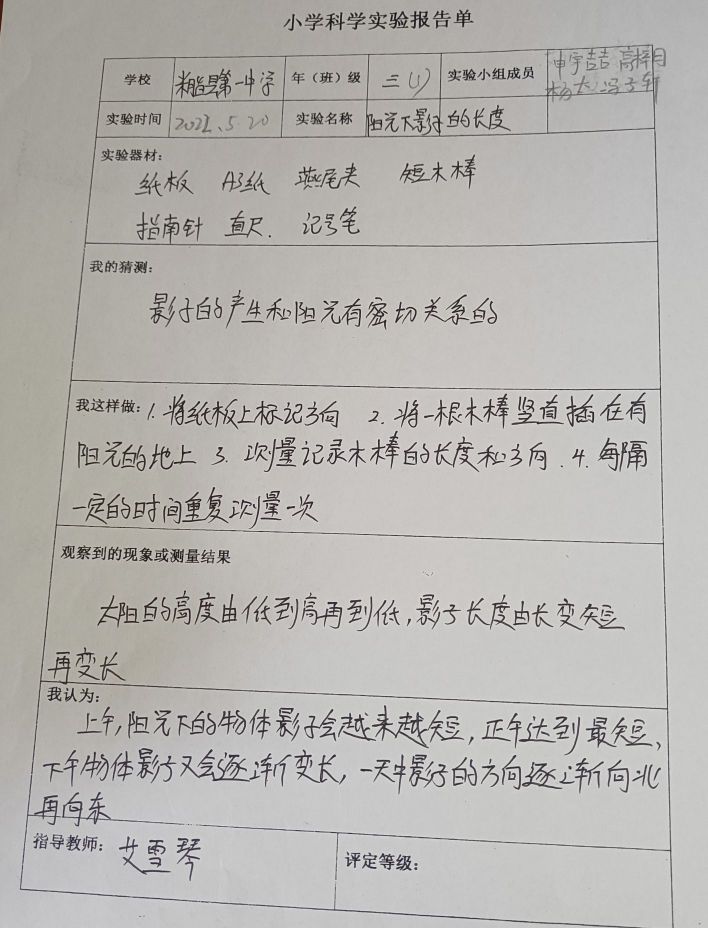 小学科学实验报告单
学校 米脂县第一中学 年（班）级 三(1) 实验小组成员 申宇喆 高梓月
杨大 冯子轩
实验时间 2022.5.20 实验名称 阳光下影子的长度
实验器材：
纸板 A3纸 燕尾夹 短木棒
指南针 直尺. 记号笔
我的猜测：
影子的产生和阳光有密切关系的
我这样做：1.将纸板上标记方向 2.将一根木棒竖直插在有
阳光的地上 3.测量记录木棒的长度和方向.4.每隔
一定的时间重复测量一次
观察到的现象或测量结果
太阳的高度由低到高再到低,影子长度由长变短
再变长
我认为：
上午,阳光下的物体影子会越来越短,正午达到最短,
下午物体影子又会逐渐变长,一天中影子的方向逐渐向北
再向东
指导教师：艾雪琴 评定等级：